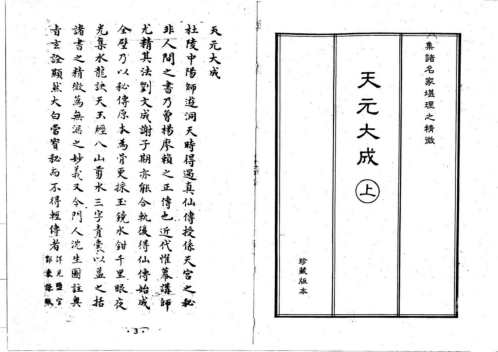 集諸名家堪理之精微
天元大成
上
珍藏版本
天元大成
杜陵中陽師遊洞天時得遇真仙傳授係天宮之秘
非人間之書乃曾楊廖賴之正傳也近代惟幕講師
尤精其法劉文成謝子期亦能合軌後得仙傳始成
全璧乃以秘傳原本為骨更採玉鏡水鉗千里眼夜
光集水龍訣天玉經八山劈水三字青囊以益之括
諸書之精微為無漏之妙義又令門人沈生圖註與
言詮顯然大白當寶秘而不得輕傳者
·3·